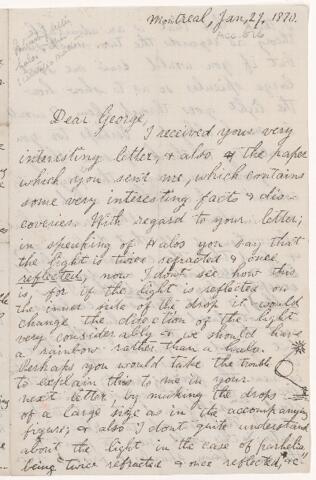 Montreal, Jan, 27, 1870.
Dear George,
I received your very
interesting letter, & also the paper
which you sent me, which contains
some very interesting facts & dis-
coveries. With regard to your letter;
in speaking of Halos you say that
the light is twice refracted & once
reflected, now I dont see how this
is, for if the light is reflected on
the inner side of the drop it would
change the direction of the light
very considerably & we should have
a rainbow rather than a halo.
Perhaps you would take the trouble
to explain this to me in your
next letter by making the drops
of a large size as in the accompanying
figure; & also I dont quite understand
about the light in the case of parhelia
being "twice refracted & once reflected, &c"